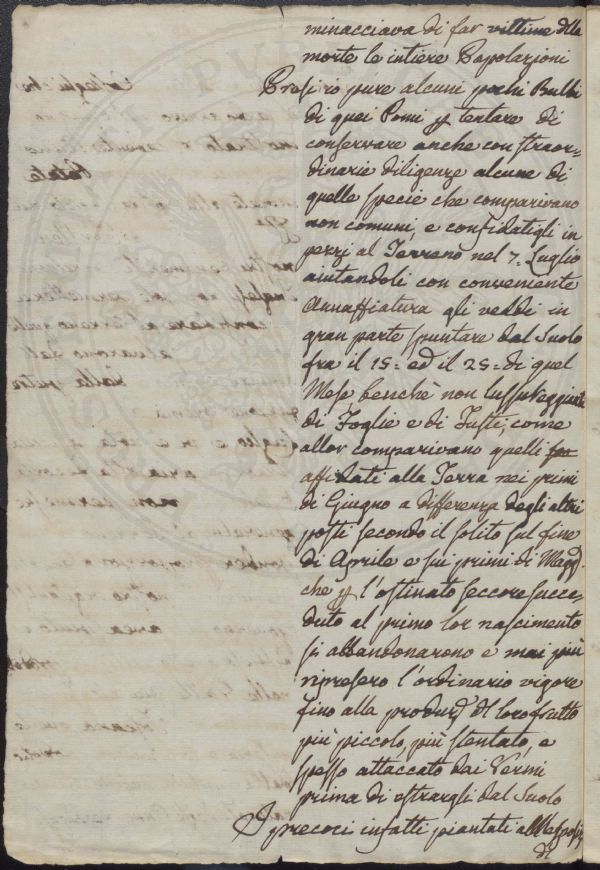 minacciava di far vittime della
morte le intiere Popolazioni
Presi io pure alcuni pochi Bulbi
di quei Pomi p tentare di
conservare anche con straor-
dinarie diligenze alcune di
quelle specie che comparivano
non comuni, e confidatigli in
pezzi al Terreno nel 7.. Luglio
aiutandoli con conveniente
Annaffiatura gli veddi in
gran parte spuntare dal Suolo
fra il 15.. ed il 25.. di quel
Mese benchè non lussureggianti
di Foglie e di Fusti, come
allor comparivano quelli
affidati alla Terra nei primi
di Giugno a differenza degli altri
posti secondo il solito sul fine
di Aprile e sui primi di Magg.
che p l'ostinato seccore succe
duto al primo lor nascimento
si abbandonarono e mai più
ripresero l'ordinario vigore
fino alla produz. dl loro frutto
più piccolo, più stentato, e
spesso attaccato dai Vermi
prima di estrargli dal Suolo
I precoci infatti piantati al
di